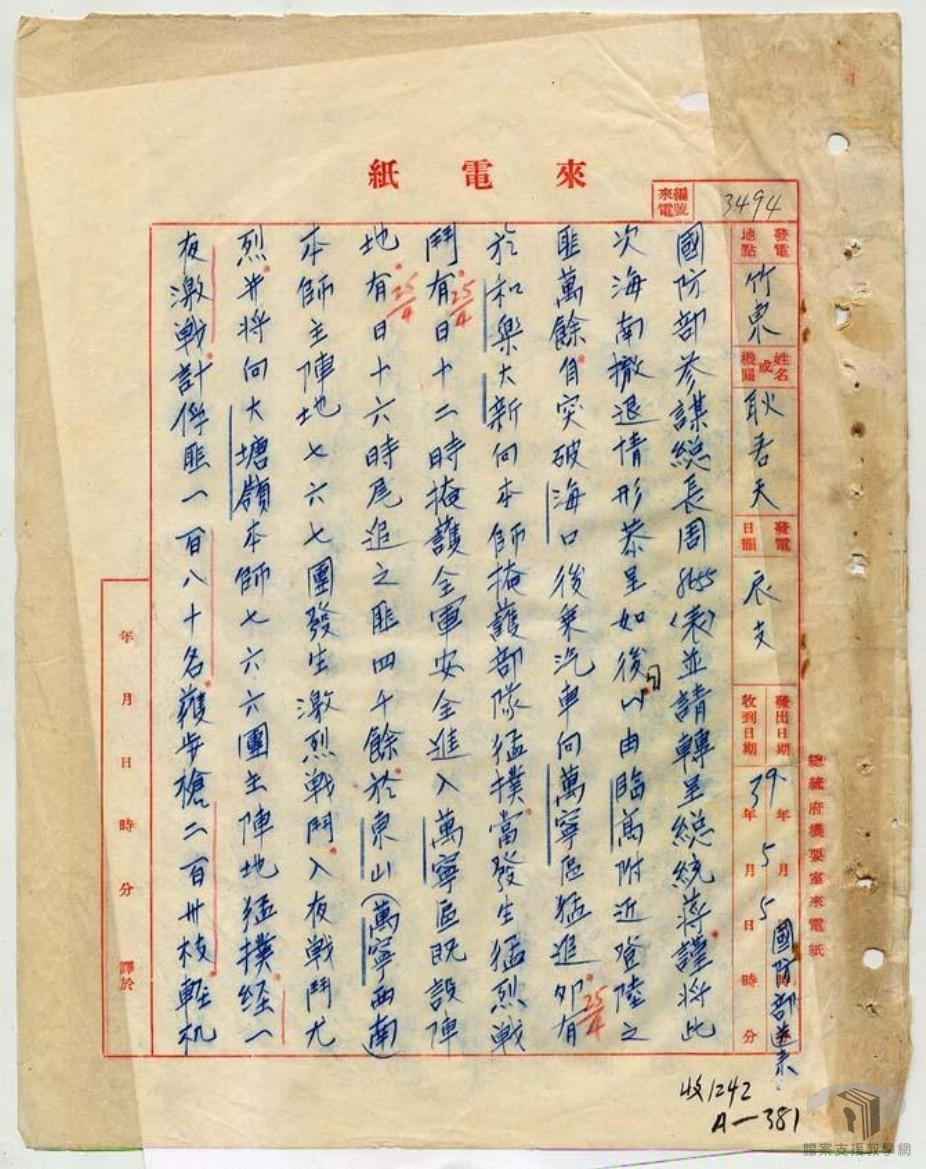 來電紙
來電編號
3494
發電地點
竹東
姓名或機關
耿若天
發電日韻
辰支
發出日期 年 月 日 時 分
收到日期 39年5月5日 時 分
國防部送來
總統府機要室來電紙
國防部參謀總長周 8455(表)並請轉呈總統蔣謹將此
次海南撤退情形恭呈如後(1)由臨高附近登陸之
匪萬餘自突破海口後乘汽車向萬寧區猛進卯有
25/4
於和樂大新向本師掩護部隊猛撲當發生猛烈戰
鬥有日十二時掩護全軍安全進入萬寧區既設陣
25/4
地有日十六時尾追之匪四千餘於東山(萬寧西南)
25/4
本師主陣地七六七團發生激烈戰鬥入夜戰鬥尤
烈並將向大塘嶺本師七六六團主陣地猛撲經一
夜激戰計俘匪一百八十名獲步槍二百卅枝輕机
年 月 日 時 分 譯於
收1242
A-381
檔案支援教學網